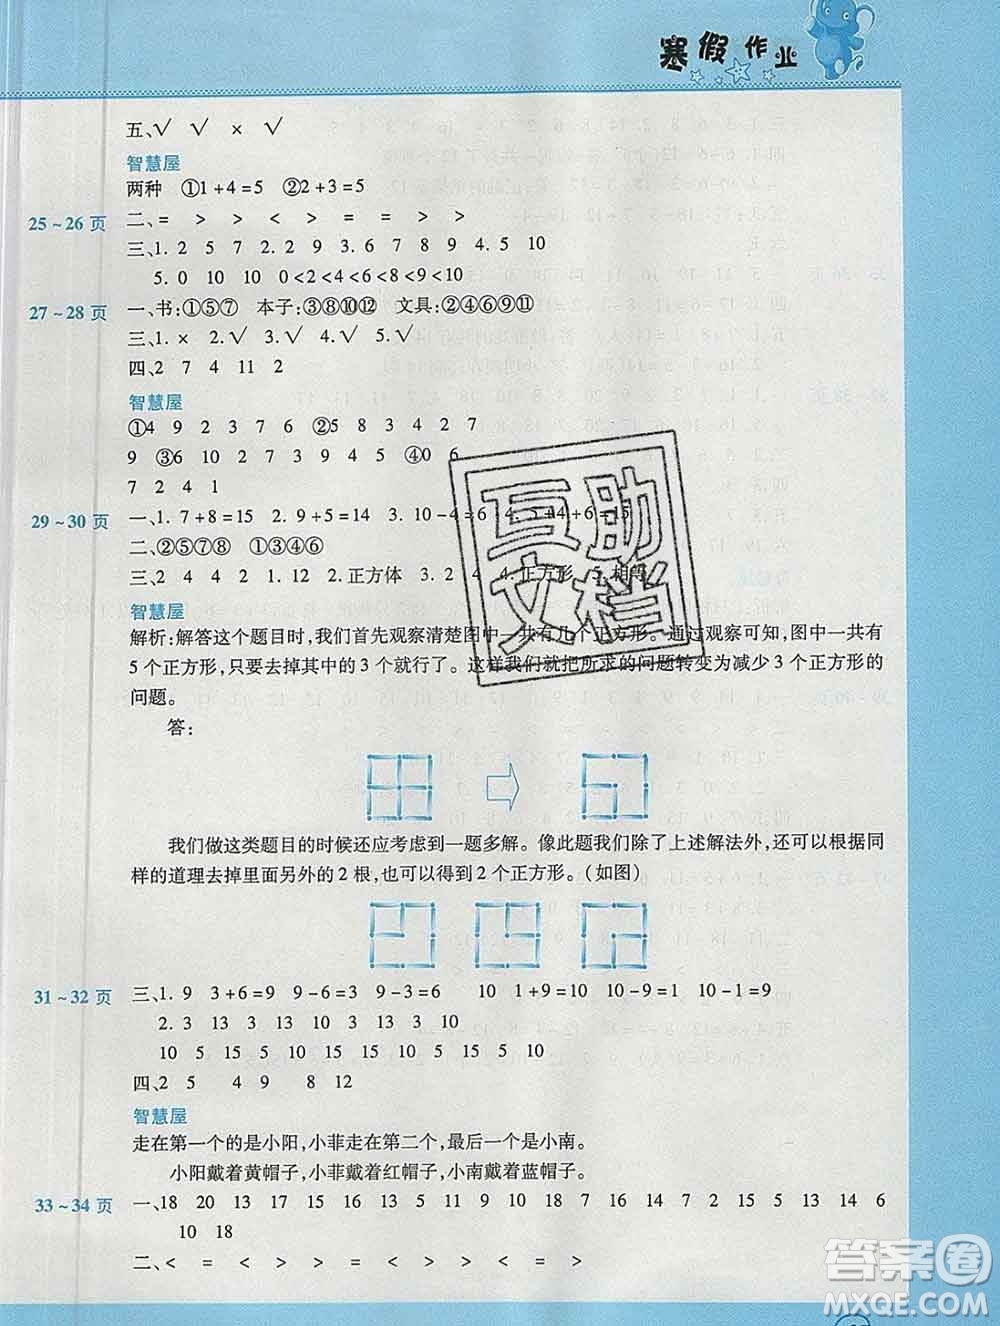 寒假作业
五、√ √ × √
智慧屋
两种 ①1+4=5 ②2+3=5
25~26页 二、= > > < > < = = > >
三、1. 2 5 7 2. 2 9 3. 8 7 9 4. 5 10
5. 0 10 10 0<2<4<6<8<9<10
27~28页 一、书:①⑤⑦ 本子:③⑧⑩⑫ 文具:②④⑥⑨⑪
三、1. × 2. √ 3. √ 4. √ 5. √
四、2 7 4 11 2
智慧屋
①4 9 2 3 7 6 ②5 8 3 4 2 7
9 ③6 10 2 1 3 9 4 5 ④0 6
7 2 4 1
29~30页 一、1. 7+8=15 2. 9+5=14 3. 10-4=6 4+6=15
二、②⑤⑦⑧ ①③④⑥
三、2. 正方体 3. 2 4 4. 正方形 5. 相等
智慧屋
解析:解答这个题目时,我们首先观察清楚图中一共有几个正方形。通过观察可知,图中一共有
5个正方形,只要去掉其中的3个就行了。这样我们就把所求的问题转变为减少3个正方形的
问题。
答:
我们做这类题目的时候还应考虑到一题多解。像此题我们除了上述解法外,还可以用同
样的道理去掉里面另外的2根,也可以得到2个正方形。(如图)
31~32页 三、1. 9 3+6=9 9-6=3 9-3=6 10 1+9=10 10-9=1 10-1=9
2. 3 13 3 13 10 3 13 3 10
10 5 15 5 10 15 10 5 15 5 10
四、2 5 4 9 8 12
智慧屋
走在第一个的是小阳,小菲走在第二个,最后一个是小南。
小阳戴着黄帽子,小菲戴着红帽子,小南戴着蓝帽子。
33~34页 一、18 20 13 17 15 16 13 14 5 11 9 10 9 15 7 20 15 5 13 14 6
10 18
二、< = < < > > < = > > < = >
互助文档
答案圈
MXQE.COM